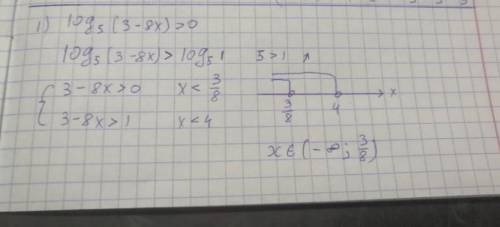 1) log₅(3-8x)>0
log₅(3-8x)>log₅1 5>1 ↑
{ 3-8x>0 x<3/8
3-8x>1 x<4
3/8 4 x
x∈(-∞; 3/8)